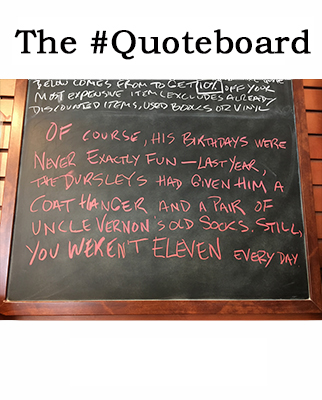 The #Quoteboard
BELOW COMES FROM TO GET 10% OFF YOUR
MOST EXPENSIVE ITEM (EXCLUDES ALREADY
DISCOUNTED ITEMS, USED BOOKS OR VINYL
OF COURSE, HIS BIRTHDAYS WERE
NEVER EXACTLY FUN — LAST YEAR,
THE DURSLEYS HAD GIVEN HIM A
COAT HANGER AND A PAIR OF
UNCLE VERNON'S OLD SOCKS. STILL,
YOU WEREN'T ELEVEN EVERY DAY